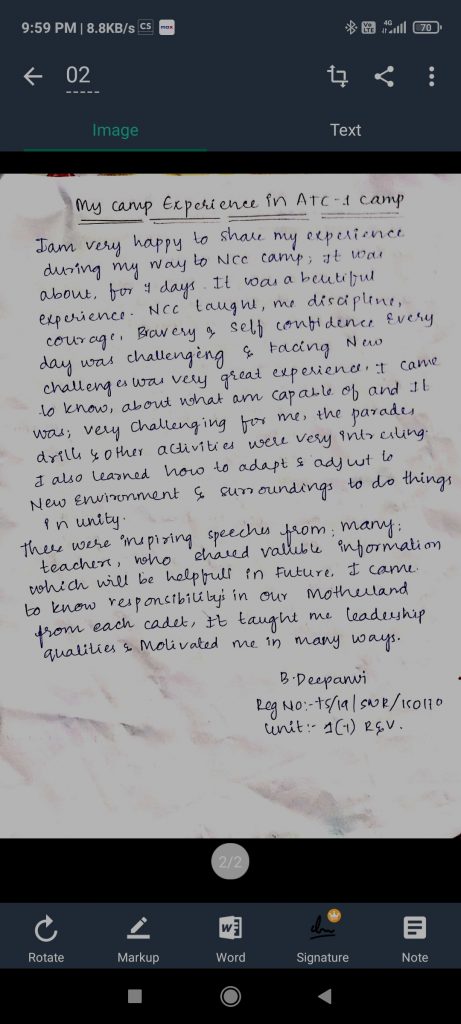 9:59 PM | 8.8KB/s CS max Vo LTE 4G 70
02
Image Text
My camp Experience in ATC-1 camp
I am very happy to share my experience
during my way to NCC camp, It was
about, for 7 days. It was a beutiful
experience. NCC taught, me discipline,
courage, Bravery & Self confidence Every
day was challenging & Facing New
challenges was very great experience, I came
to know, about what am capable of and It
was, very Challenging for me, the parades
drills & other activities were very
I also learned how to adapt & adjust to
New Environment & surroundings to do things
in unity.
There were inspiring speeches from, many,
teachers, who shared valuble information
which will be helpfull in Future, I came
to know responsibility's in our Motherland
from each cadet, It taught me leadership
qualities & Motivated me in many ways.
B. Deepanvi
Reg No:- TS/19/SWR/150170
Unit:- 1(T) R&V.
2/2
Rotate Markup Word Signature Note